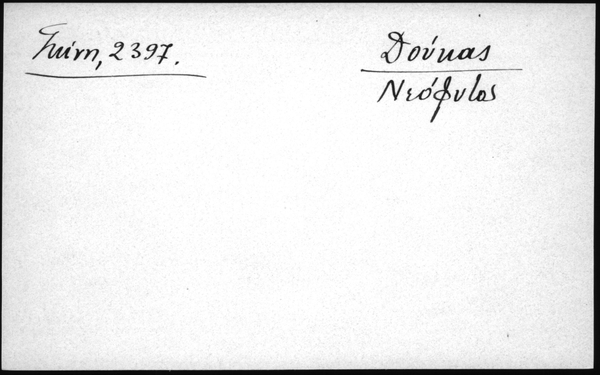 Σκίνη, 2397.
Δούκας
Νεόφυτος